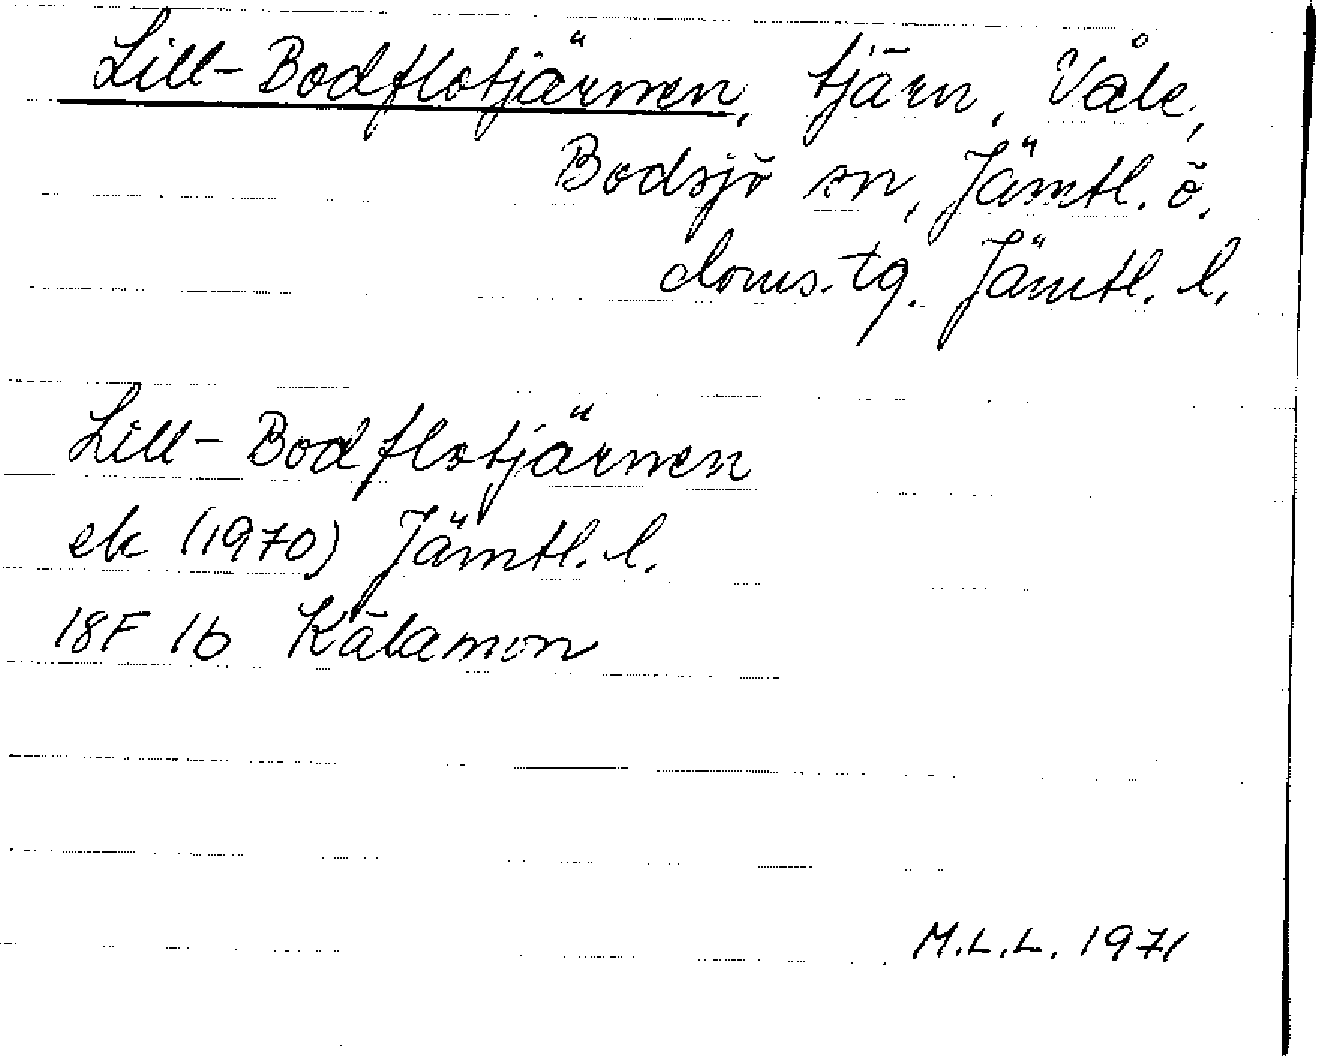 Lill-Bodflotjärnen, tjärn, Våle,
Bodsjö sn, Jämtl. ö.
doms.tg. Jämtl. l.
Lill-Bodflotjärnen
ek (1970) Jämtl. l.
18F 1b Kälamon
M.L.L. 1971